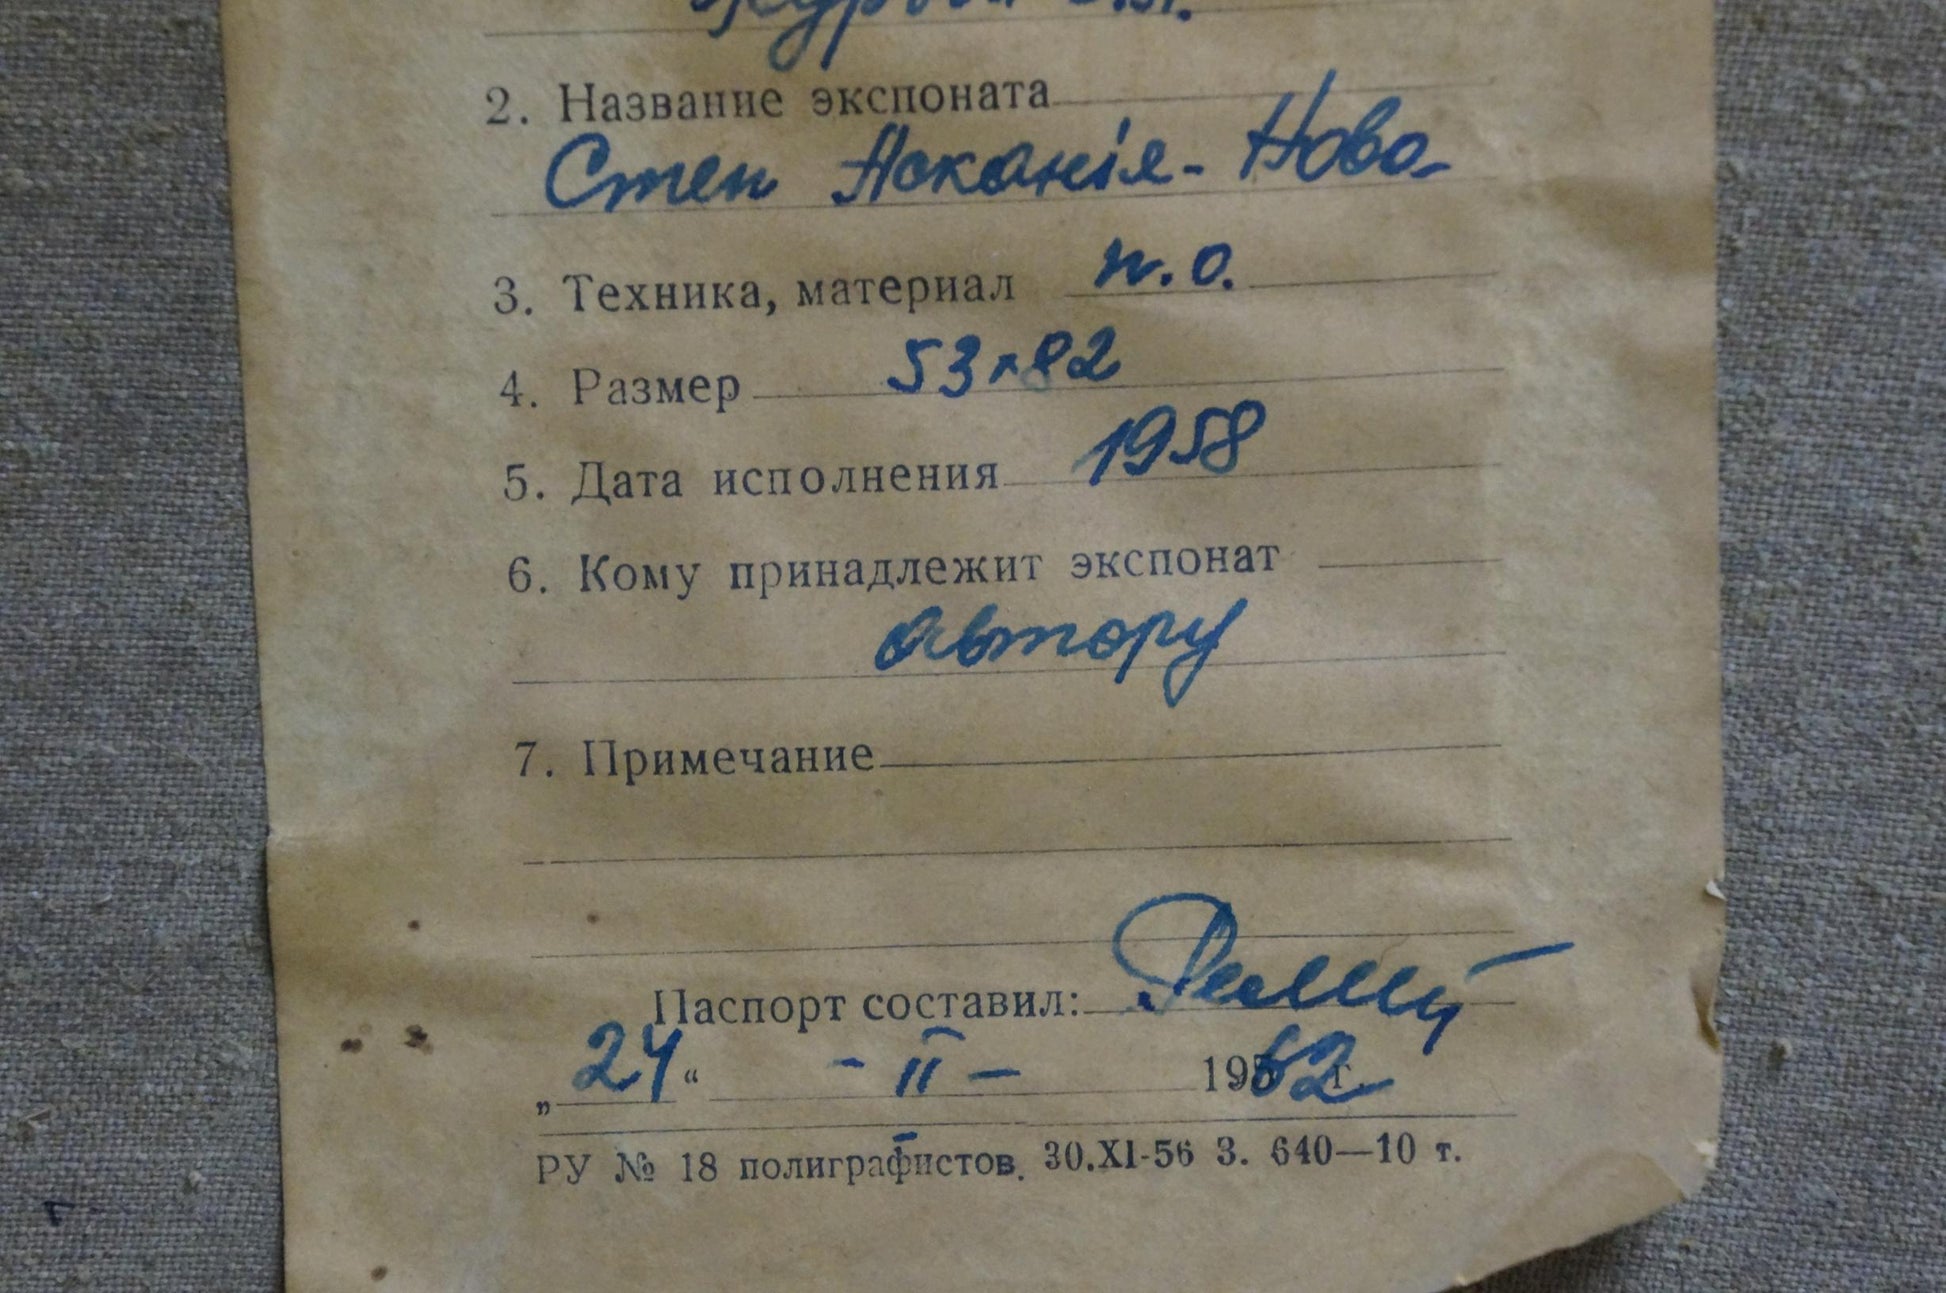 2. Название экспоната
Степ Асканія-Нова
3. Техника, материал п.о.
4. Размер 53×82
5. Дата исполнения 1958
6. Кому принадлежит экспонат
автору
7. Примечание
Паспорт составил:
„24“ -II- 1962 г.
РУ № 18 полиграфистов. 30.XI-56 З. 640—10 т.